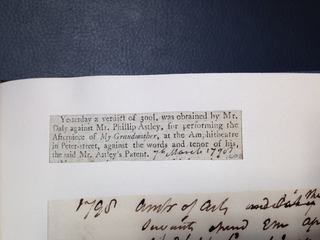 Yesterday a verdict of 300l. was obtained by Mr.
Daly against Mr. Phillip Astley, for performing the
Afterpiece of My Grandmother, at the Amphitheatre
in Peter-street, against the words and tenor of his,
the said Mr. Astley's Patent. 7th March 1798
1798 Ambr of Arts and
Servants